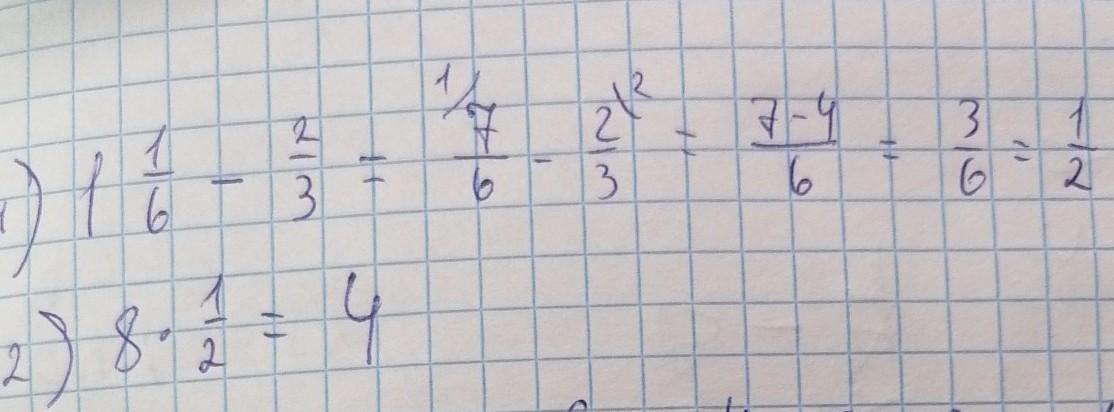 1) 1 1/6 - 2/3 = ¹/ 7/6 - 2\²/3 = 7-4/6 = 3/6 = 1/2
2) 8 · 1/2 = 4